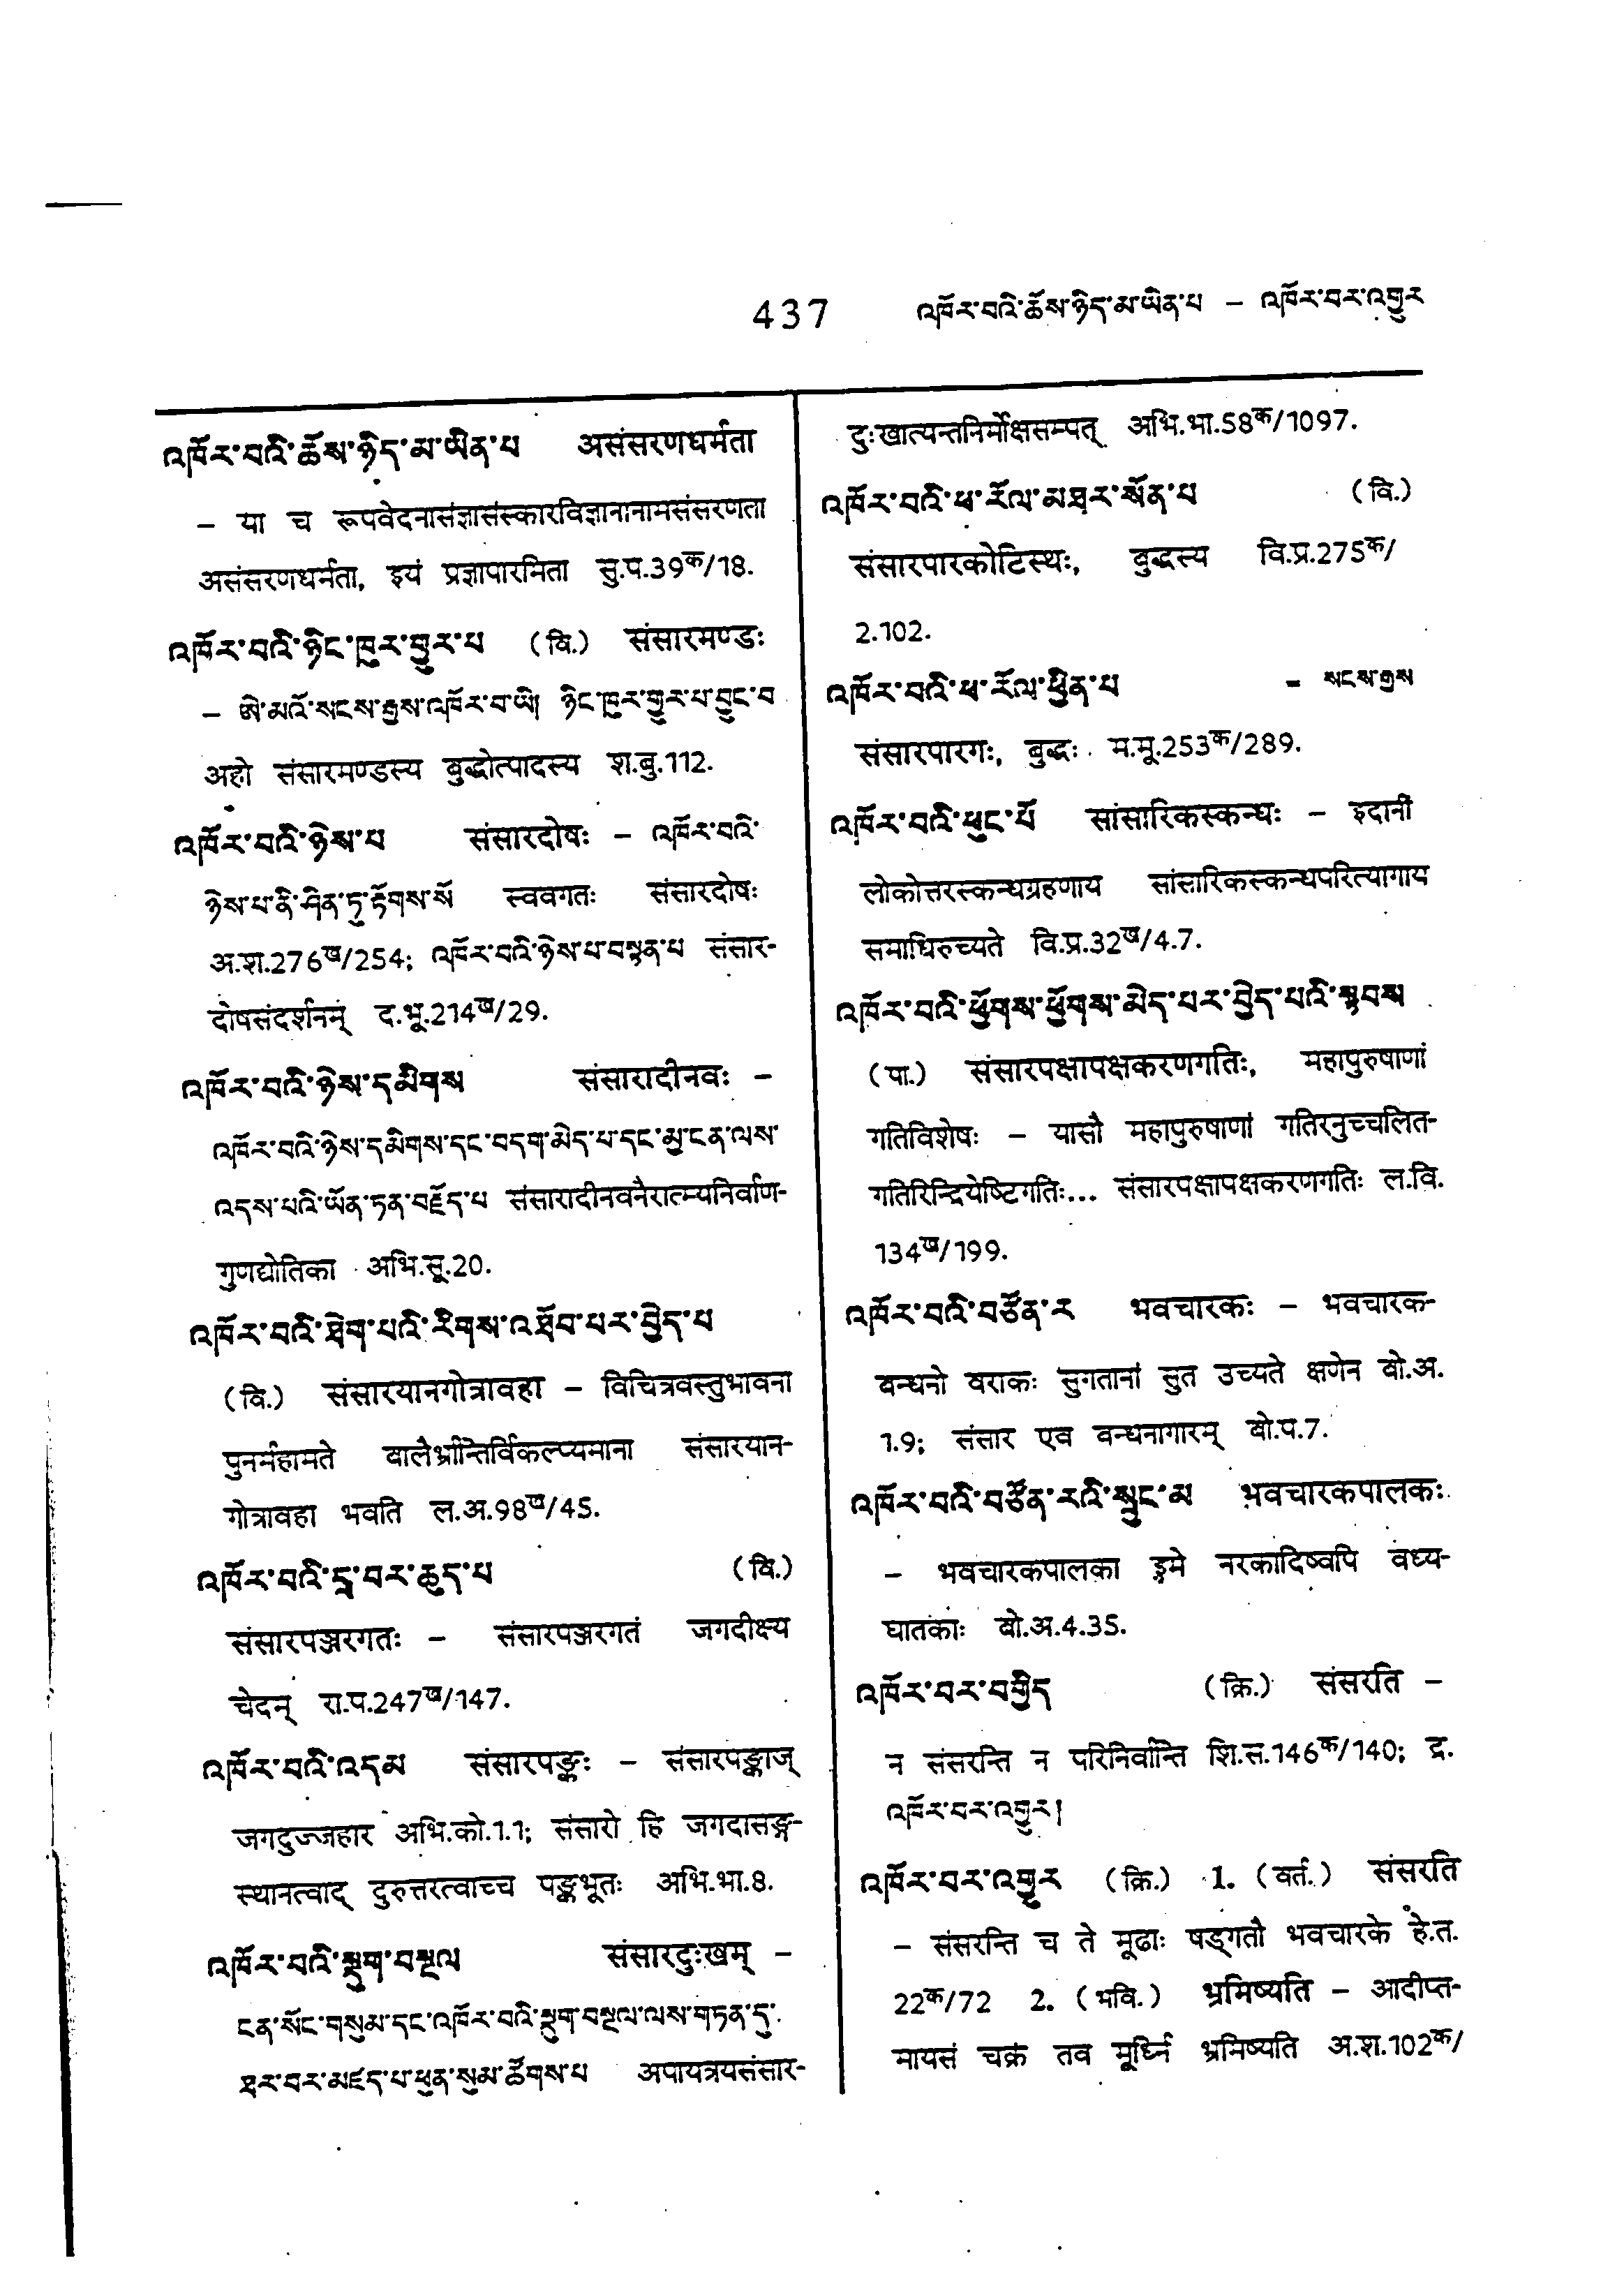 437 འཁོར་བའི་ཆོས་ཉིད་མ་ཡིན་པ – འཁོར་བར་འགྱུར
འཁོར་བའི་ཆོས་ཉིད་མ་ཡིན་པ असंसरणधर्मता
– या च रूपवेदनासंज्ञासंस्कारविज्ञानानामसंसरणता
असंसरणधर्मता, इयं प्रज्ञापारमिता सु.प.39क/18.
འཁོར་བའི་ཉིང་ཁུར་གྱུར་པ (वि.) संसारमण्डः
– ཨེ་མའོ་སངས་རྒྱས་འཁོར་བ་ཡི། ཉིང་ཁུར་གྱུར་པ་བྱུང་བ
अहो संसारमण्डस्य बुद्धोत्पादस्य श.बु.112.
འཁོར་བའི་ཉེས་པ संसारदोषः – འཁོར་བའི་
ཉེས་པ་ནི་ཤིན་ཏུ་རྟོགས་སོ स्ववगतः संसारदोषः
अ.श.276ख/254; འཁོར་བའི་ཉེས་པ་བསྟན་པ संसार-
दोषसंदर्शनम् द.भू.214ख/29.
འཁོར་བའི་ཉེས་དམིགས संसारादीनवः –
འཁོར་བའི་ཉེས་དམིགས་དང་བདག་མེད་པ་དང་མྱ་ངན་ལས་
འདས་པའི་ཡོན་ཏན་བརྗོད་པ संसारादीनवनैरात्म्यनिर्वाण-
गुणद्योतिका अभि.सू.20.
འཁོར་བའི་ཐེག་པའི་རིགས་འཐོབ་པར་བྱེད་པ
(वि.) संसारयानगोत्रावहा – विचित्रवस्तुभावना
पुनर्महामते बालैर्भ्रान्तिर्विकल्प्यमाना संसारयान-
गोत्रावहा भवति ल.अ.98ख/45.
འཁོར་བའི་དྲྭ་བར་ཆུད་པ (वि.)
संसारपञ्जरगतः – संसारपञ्जरगतं जगदीक्ष्य
चेदन् रा.प.247ख/147.
འཁོར་བའི་འདམ संसारपङ्कः – संसारपङ्काज्
जगदुज्जहार अभि.को.1.1; संसारो हि जगदासङ्ग-
स्थानत्वाद् दुरुत्तरत्वाच्च पङ्कभूतः अभि.भा.8.
འཁོར་བའི་སྡུག་བསྔལ संसारदुःखम् –
ངན་སོང་གསུམ་དང་འཁོར་བའི་སྡུག་བསྔལ་ལས་གཏན་དུ་
ཐར་བར་མཛད་པ་ཕུན་སུམ་ཚོགས་པ अपायत्रयसंसार-
दुःखात्यन्तनिर्मोक्षसम्पत् अभि.भा.58क/1097.
འཁོར་བའི་ཕ་རོལ་མཐར་སོན་པ (वि.)
संसारपारकोटिस्थः, बुद्धस्य वि.प्र.275क/
2.102.
འཁོར་བའི་ཕ་རོལ་ཕྱིན་པ = སངས་རྒྱས
संसारपारगः, बुद्धः म.मू.253क/289.
འཁོར་བའི་ཕུང་པོ सांसारिकस्कन्धः – इदानीं
लोकोत्तरस्कन्धग्रहणाय सांसारिकस्कन्धपरित्यागाय
समाधिरुच्यते वि.प्र.32ख/4.7.
འཁོར་བའི་ཕྱོགས་ཕྱོགས་མེད་པར་བྱེད་པའི་སྟབས
(पा.) संसारपक्षापक्षकरणगतिः, महापुरुषाणां
गतिविशेषः – यासौ महापुरुषाणां गतिरनुच्चलित-
गतिरिन्द्रियेष्टिगतिः... संसारपक्षापक्षकरणगतिः ल.वि.
134ख/199.
འཁོར་བའི་བཙོན་ར भवचारकः – भवचारक-
बन्धनो वराकः सुगतानां सुत उच्यते क्षणेन बो.अ.
1.9; संसार एव बन्धनागारम् बो.प.7.
འཁོར་བའི་བཙོན་རའི་སྲུང་མ भवचारकपालकः
– भवचारकपालका इमे नरकादिष्वपि वध्य-
घातकाः बो.अ.4.35.
འཁོར་བར་བགྱིད (क्रि.) संसरति –
न संसरन्ति न परिनिर्वान्ति शि.स.146क/140; द्र.
འཁོར་བར་འགྱུར།
འཁོར་བར་འགྱུར (क्रि.) 1. (वर्त.) संसरति
– संसरन्ति च ते मूढाः षड्गतौ भवचारके हे.त.
22क/72 2. (भवि.) भ्रमिष्यति – आदीप्त-
मायसं चक्रं तव मूर्ध्नि भ्रमिष्यति अ.श.102क/